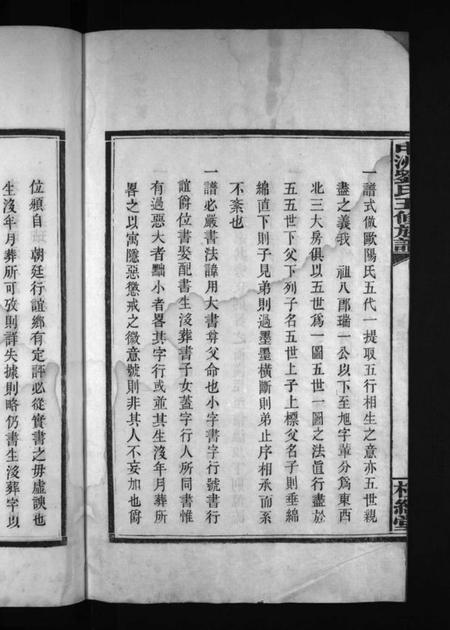 中湘劉氏五修族譜
一譜式倣歐陽氏五代一提取五行相生之意亦五世親
盡之義我 祖八郎瑞一公以下至旭字輩分爲東西
北三大房俱以五世爲一圖五世一圖之法直行盡於
五五世下父下列子名五世上子上標父名子則垂綿
綿直下則子見弟則過墨墨橫斷則弟止序相承而系
不紊也
一譜必嚴書法諱用大書尊父命也小字書字行號書行
誼爵位書娶配書生沒葬書子女蓋字行人所同書惟
有過惡大者黜小者畧其字行或並其生沒年月葬所
畧之以寓隱惡懲戒之微意號則非其人不妄加也爵
位頒自 朝廷行誼鄉有定評必從實書之毋虛諛也
生沒年月葬所可攷則詳失據則略仍書生沒葬字以